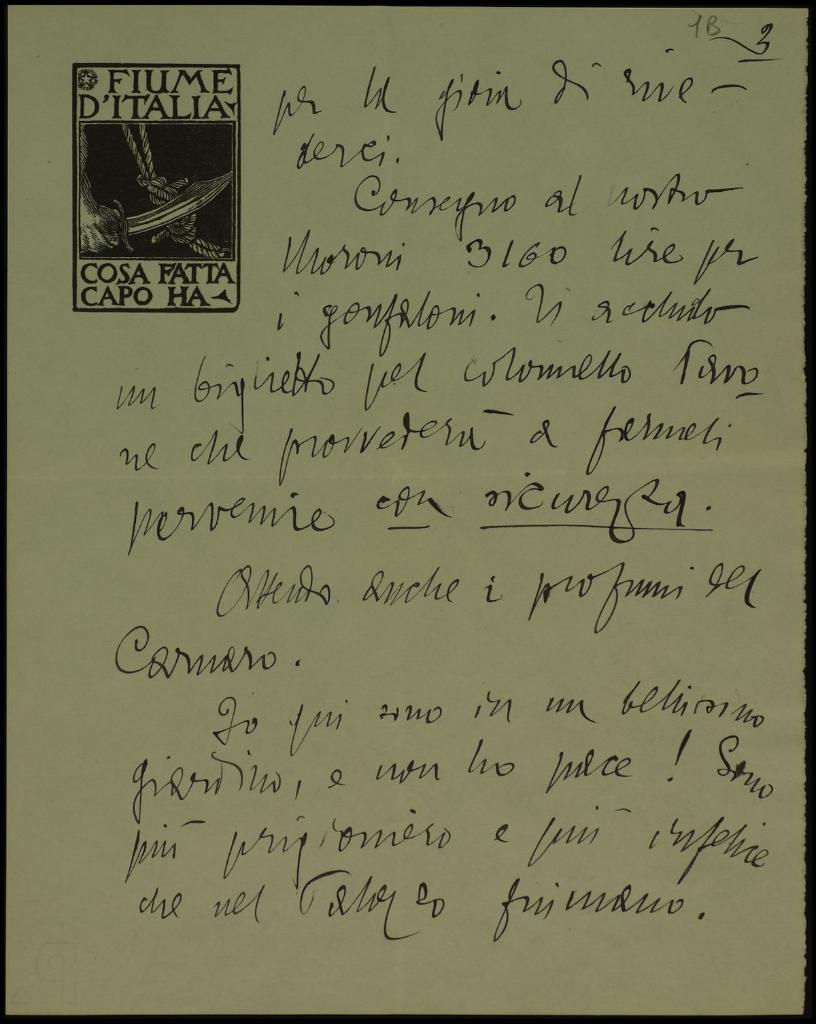 1B 3
FIUME
D'ITALIA
COSA FATTA
CAPO HA
per la gioia di rive-
derci.
Consegno al nostro
Moroni 3160 lire per
i gonfaloni. Ti accludo
un biglietto pel colonnello Tavo
ne che provvederà a farmeli
pervenire con sicurezza.
Attendo anche i profumi del
Carnaro.
Io qui sono in un bellissimo
giardino, e non ho pace! Sono
più prigioniero e più infelice
che nel Palazzo fiumano.